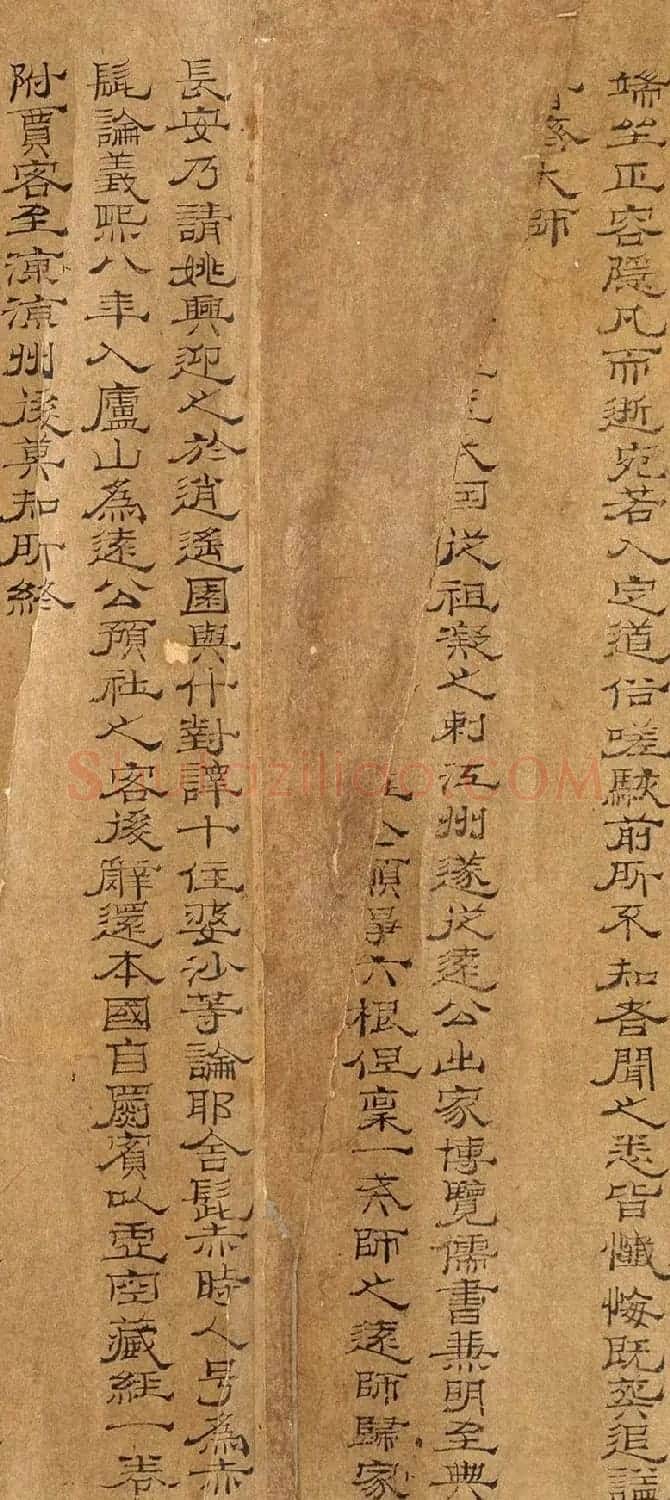 端坐正容隱凡而逝宛若入定道俗嗟駭前所不知者聞之悉皆懺悔既葬追謚
大師
大国從祖凝之刺江州遂從遠公出家博覽儒書兼明至典
六根但稟一師之遠師歸家
長安乃請姚興迎之於逍遙園與什對譯十住婆沙等論耶舍髭赤時人号為赤
髭論義熙八年入廬山為遠公預社之客後辭還本國自罽賓以虛空藏經一卷
附賈客至涼涼州後莫知所終
Shufaziliao.COM